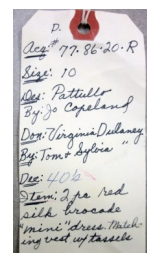 D.
Acq# 77.86-20-R
Size: 10
Des: Pattullo
By: Jo Copeland
Don: Virginia Dulaney
By: Tom & Sylvia "
Dec: 40b
Item: 2 pc red
silk brocade
"mini" dress. Match-
ing vest w/ tassels